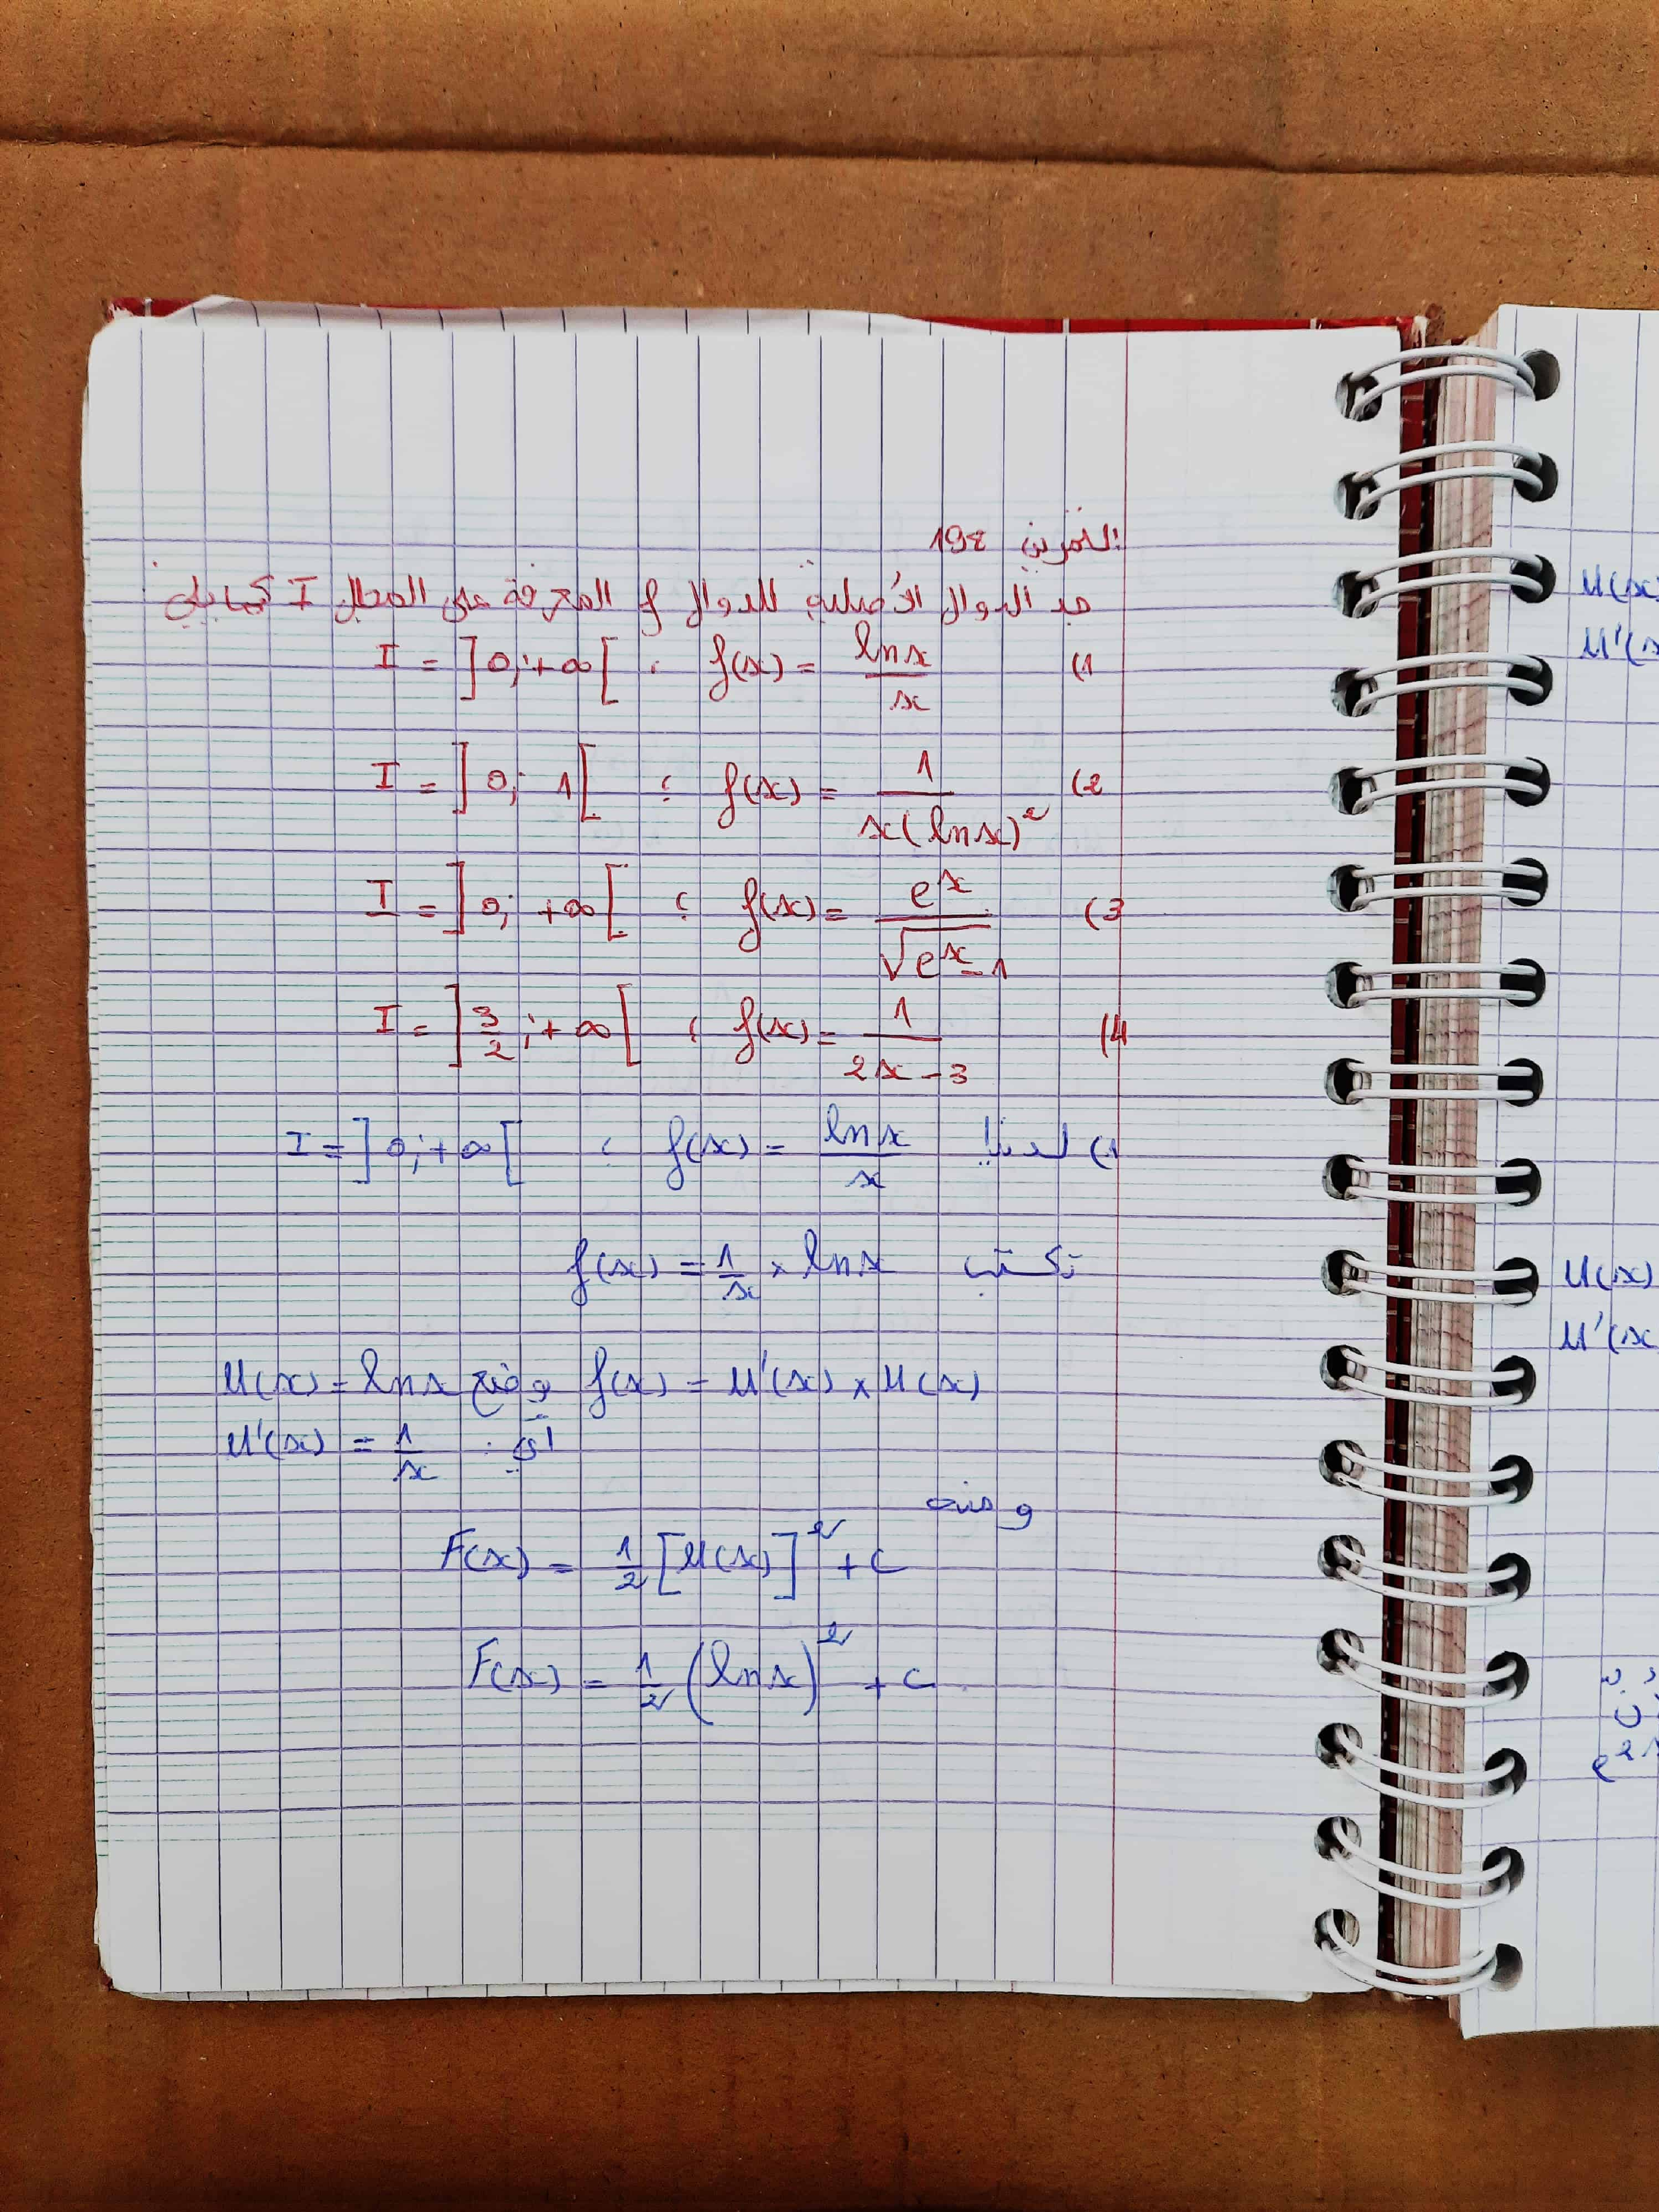 التمرين 198
جد الدوال الأصلية للدوال f المعرفة على المجال I كمايلي
1) f(x) = \frac{ln x}{x} ; I = ]0; +∞[
2) f(x) = \frac{1}{x(ln x)^2} ; I = ]0; 1[
3) f(x) = \frac{e^x}{\sqrt{e^x - 1}} ; I = ]0; +∞[
4) f(x) = \frac{1}{2x - 3} ; I = ]\frac{3}{2}; +∞[
1) لدينا f(x) = \frac{ln x}{x} ; I = ]0; +∞[
تكتب f(x) = \frac{1}{x} × ln x
f(x) = U'(x) × U(x) وضع U(x) = ln x
أي : U'(x) = \frac{1}{x}
ومنه
F(x) = \frac{1}{2} [U(x)]^2 + C
F(x) = \frac{1}{2} (ln x)^2 + C
U(x)
U'(x
U(x)
U'(x